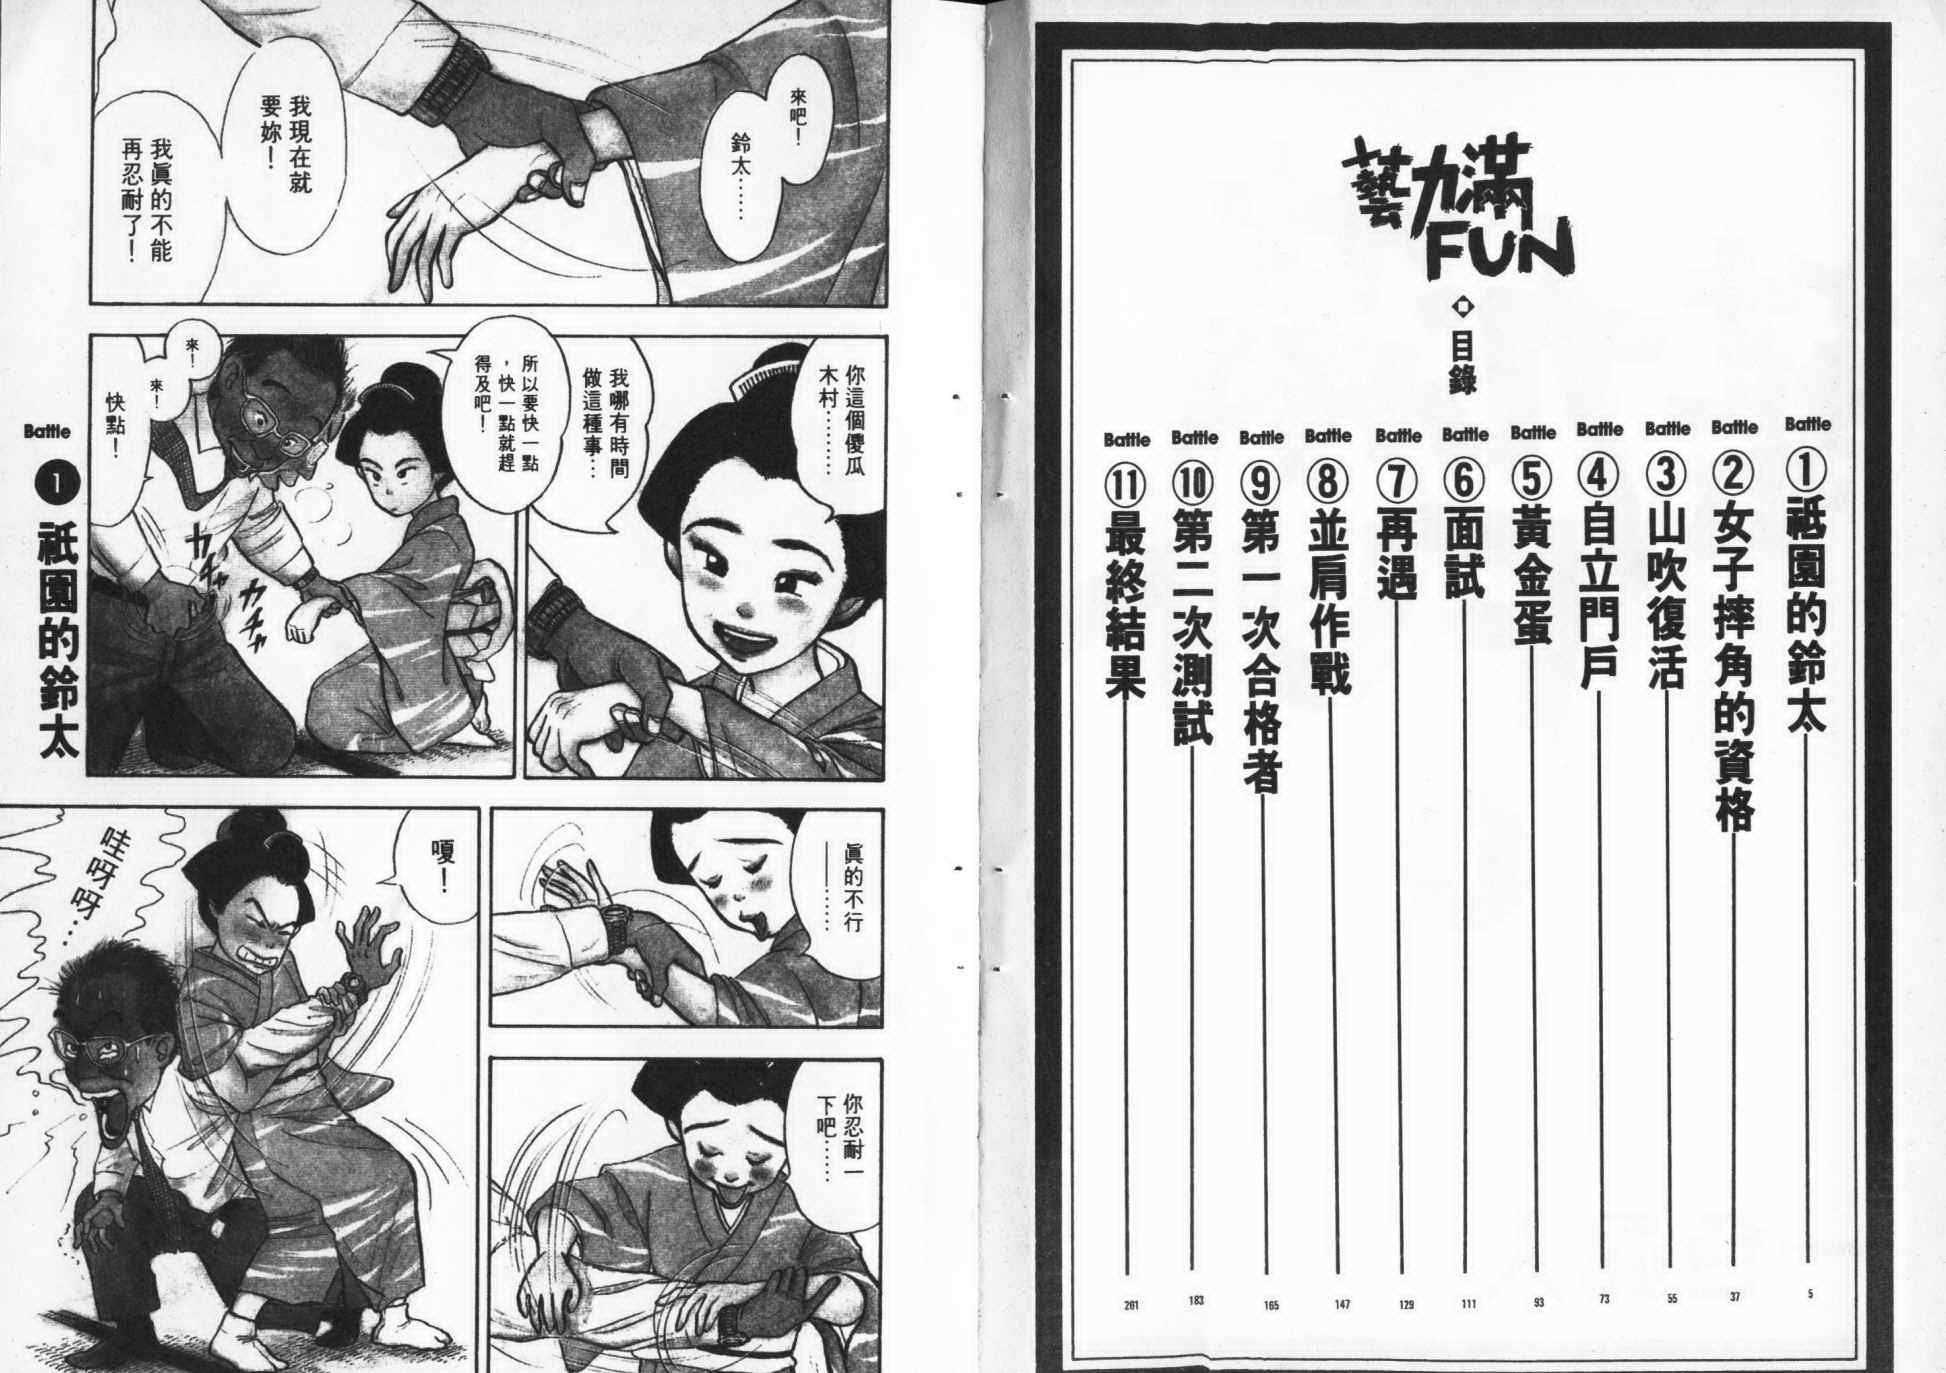 藝力滿
FUN
目錄
Battle
①祗園的鈴太
5
Battle
②女子摔角的資格
37
Battle
③山吹復活
55
Battle
④自立門戶
73
Battle
⑤黃金蛋
93
Battle
⑥面試
111
Battle
⑦再遇
129
Battle
⑧並肩作戰
147
Battle
⑨第一次合格者
165
Battle
⑩第二次測試
183
Battle
⑪最終結果
201
來吧！
鈴太……
我現在就
要妳！
我眞的不能
再忍耐了！
你這個傻瓜
木村………
我哪有時間
做這種事…
所以要快一點
，快一點就趕
得及吧！
來！
來！
快點！
カチャ
カチャ
Battle
1
祗園的鈴太
眞的不行
──………
你忍耐一
下吧……
嗄！
哇呀呀…